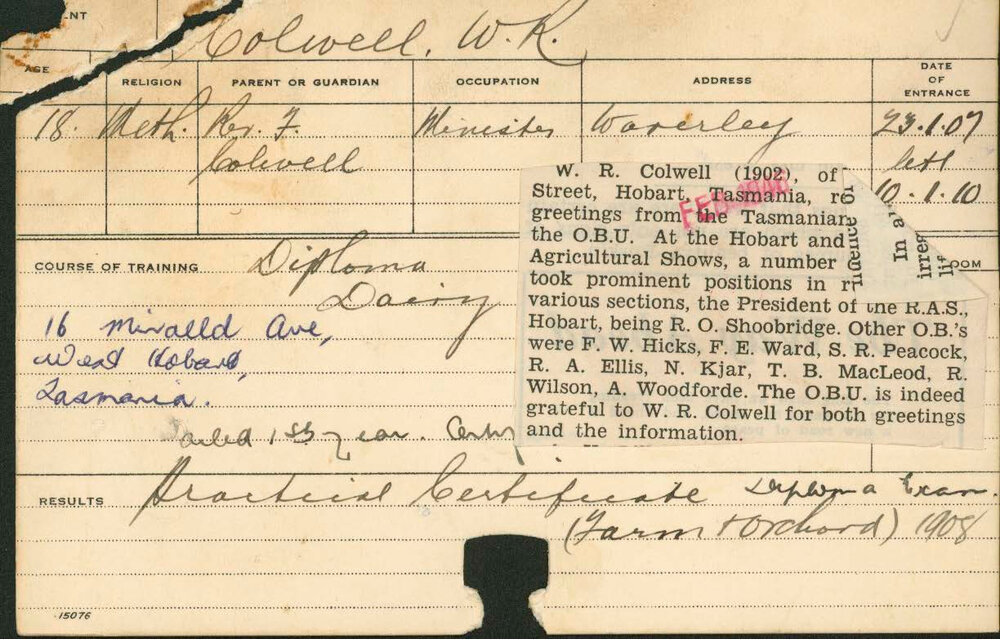 NT
Colwell, W. R.
AGE
RELIGION
PARENT OR GUARDIAN
OCCUPATION
ADDRESS
DATE
OF
ENTRANCE
18. Meth. Rev. F. Minister Waverley 23.1.07
Colwell left
10.1.10
W. R. Colwell (1902), of
Street, Hobart, Tasmania, re
greetings from the Tasmanian
the O.B.U. At the Hobart and
Agricultural Shows, a number
took prominent positions in
various sections, the President of the R.A.S.,
Hobart, being R. O. Shoobridge. Other O.B.'s
were F. W. Hicks, F. E. Ward, S. R. Peacock,
R. A. Ellis, N. Kjar, T. B. MacLeod, R.
Wilson, A. Woodforde. The O.B.U. is indeed
grateful to W. R. Colwell for both greetings
and the information.
FEB
In
irreg
OOM
COURSE OF TRAINING Diploma
Dairy
16 Ave,
West Hobart,
Tasmania.
1st year.
RESULTS Practical Certificate Diploma Exam.
(Farm & Orchard) 1908
15076